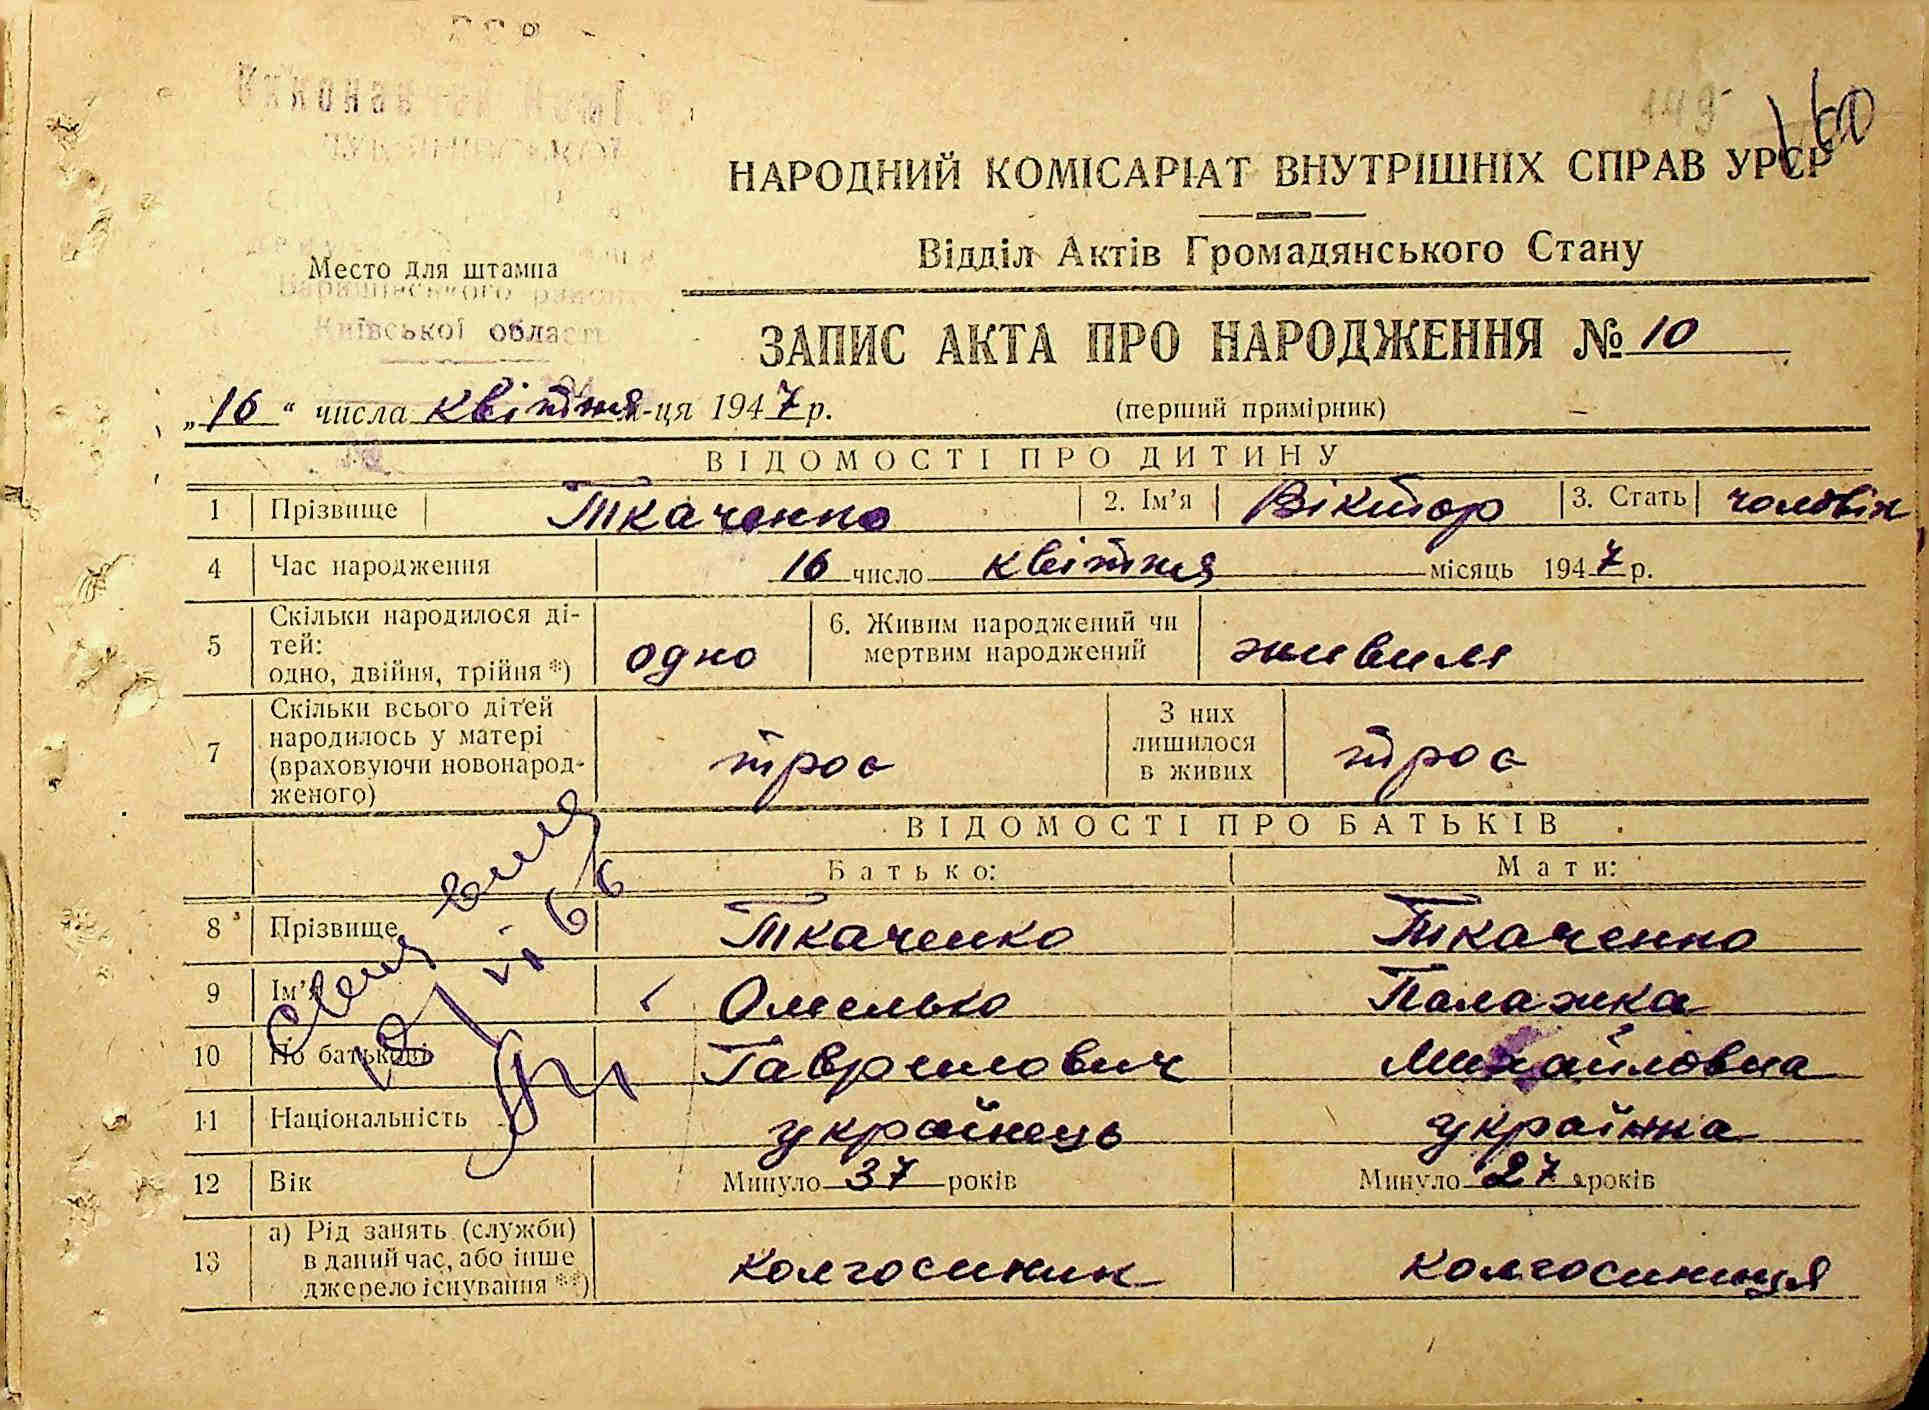 149 160
НАРОДНИЙ КОМІСАРІАТ ВНУТРІШНІХ СПРАВ УРСР
Відділ Актів Громадянського Стану
Место для штампа
Київської област
ЗАПИС АКТА ПРО НАРОДЖЕННЯ № 10
„16“ числа квітня м-ця 1947 р. (перший примірник)
ВІДОМОСТІ ПРО ДИТИНУ
1 Прізвище Ткаченко 2. Ім'я Віктор 3. Стать чоловіч
4 Час народження 16 число квітня місяць 1947 р.
5 Скільки народилося ді-
тей:
одно, двійня, трійня *) одно 6. Живим народжений чи
мертвим народжений живим
7 Скільки всього дітей
народилось у матері
(враховуючи новонарод-
женого) троє З них
лишилося
в живих троє
ВІДОМОСТІ ПРО БАТЬКІВ
Батько: Мати:
8 Прізвище Ткаченко Ткаченко
9 Ім'я Омелько Палажка
10 По батькові Гаврилович Михайловна
11 Національність українець українка
12 Вік Минуло 37 років Минуло 27 років
13 а) Рід занять (служби)
в даний час, або інше
джерело існування **) колгоспник колгоспниця